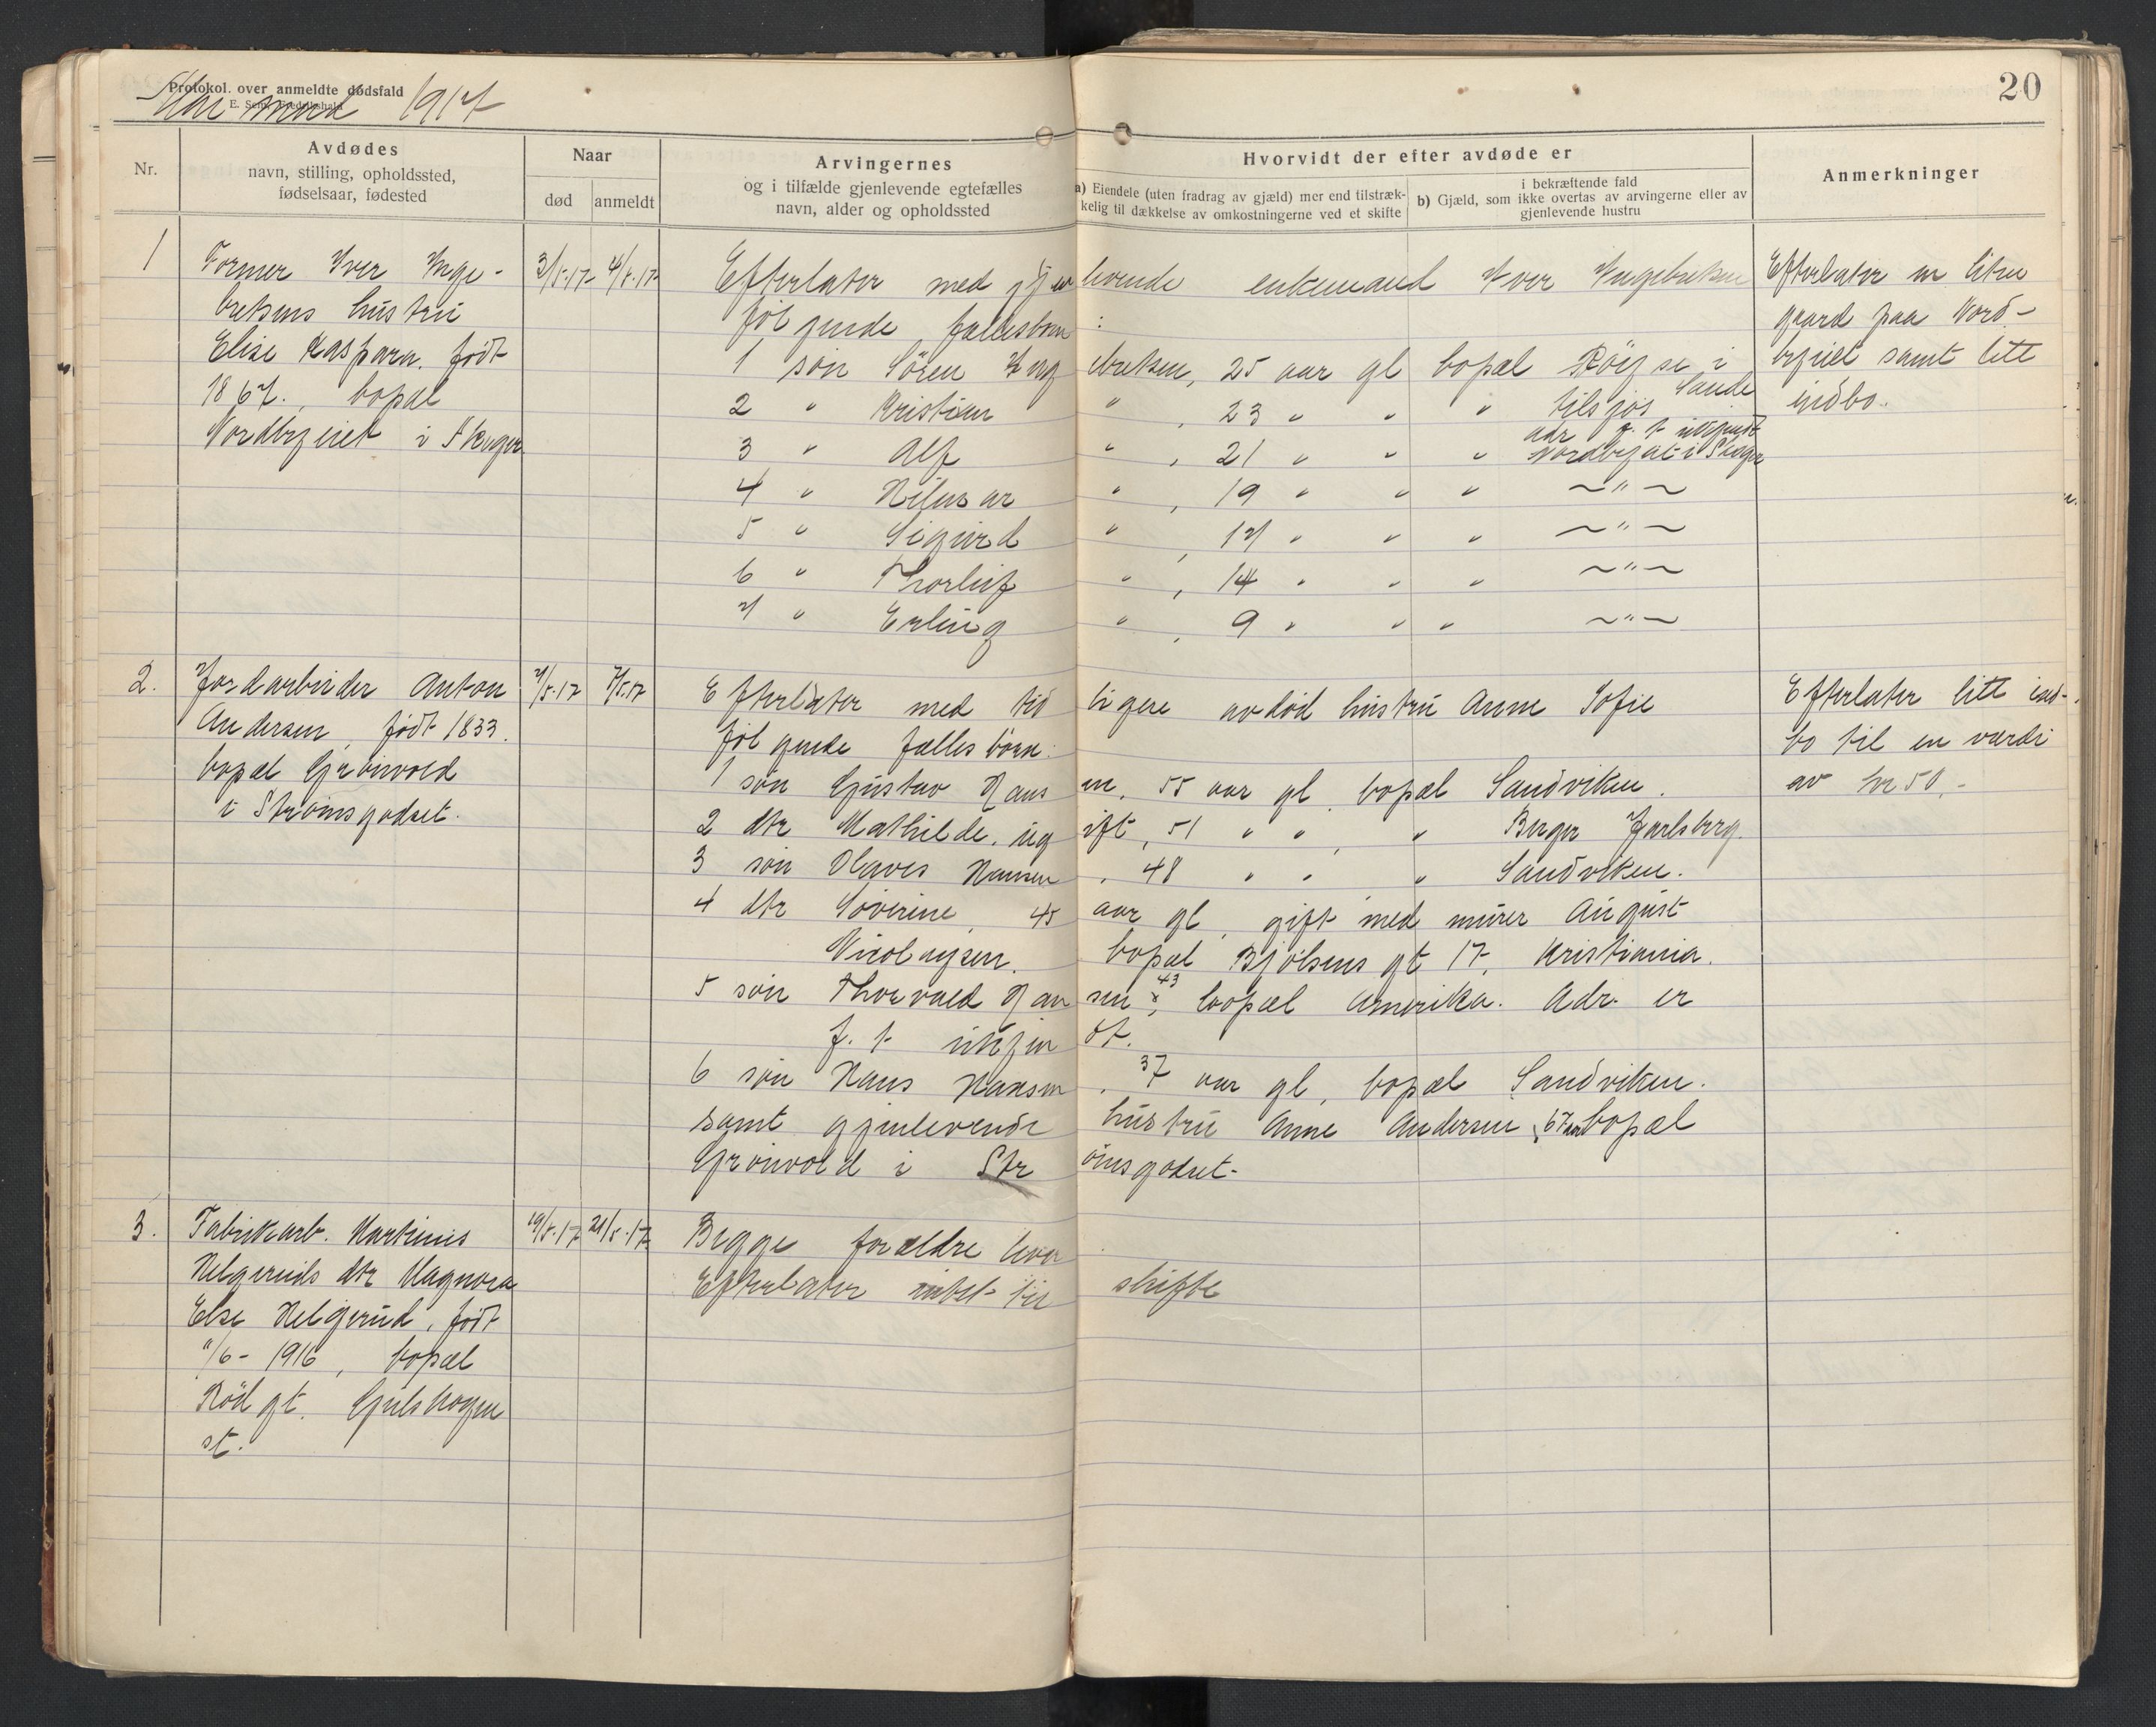 Protokol. over anmeldte dødsfald
Mai maaned 1917
20
Nr.
Avdødes
navn, stilling, opholdssted,
fødselsaar, fødested
Naar
død
anmeldt
Arvingernes
og i tilfælde gjenlevende egtefælles
navn, alder og opholdssted
Hvorvidt der efter avdøde er
a) Eiendele (uten fradrag av gjæld) mer end tilstræk-
kelig til dækkelse av omkostningerne ved et skifte
i bekræftende fald
b) Gjæld, som ikke overtas av arvingerne eller av
gjenlevende hustru
Anmerkninger
1
Former Iver Inge-
bretsens hustru
Elise Kaspara. født
1867., bopæl
Nordbyeiet i Skoger
3/5.17 4/5.17
Efterlater med gjenlevende enkemand Iver Ingebretsen
følgende fællesbørn :
1 søn Søren Ingebretsen, 25 aar gl bopæl Røyse i Sande
2 " Kristian " , 23 " " " tilsjøs
adr f. t. ukjendt
3 " Alf " , 21 " " " Nordbyeiet i Skoger
4 " Hilmar " , 19 " " " ~"~
5 " Sigurd " , 17 " " " ~"~
6 " Thorleif " , 14 " " " ~"~
7 " Erling " , 9 " " " ~"~
Efterlater en liten
gaard paa Nord-
byeiet samt litt
indbo.
2.
Jordarbeider Anton
Andersen, født 1833.
bopæl Grønvold
i Strømsgodset.
7/5.17 7/5.17
Efterlater med tidligere avdød hustru Anne Sofie
følgende fælles børn:
1 søn Gustav Hansen, 55 aar gl, bopæl Sandviken.
2 dtr Mathilde, ugift, 51 " " , " Berger Jarlsberg.
3 søn Olaves Hansen, 48 " " , " Sandviken.
4 dtr Søverine, 45 aar gl, gift med murer August
Nicolaysen. bopæl Bjølsens gt 17, Kristiania.
5 søn Thorvald Hansen 43, bopæl Amerika. Adr. er
f. t. ukjendt.
6 søn Hans Hansen, 37 aar gl, bopæl Sandviken.
samt gjenlevende hustru Anne Andersen, 67 aar bopæl
Grønvold i Strømsgodset.
Efterlater litt ind-
bo til en værdi
av kr 50,-
3.
Fabrikarb. Martinius
Helgeruds dtr Magnora
Else Helgerud, født
11/6 - 1916, bopæl
Rød gt. Gulskogen
st.
19/5.17 21/5.17
Begge forældre lever
Efterlater intet til skifte